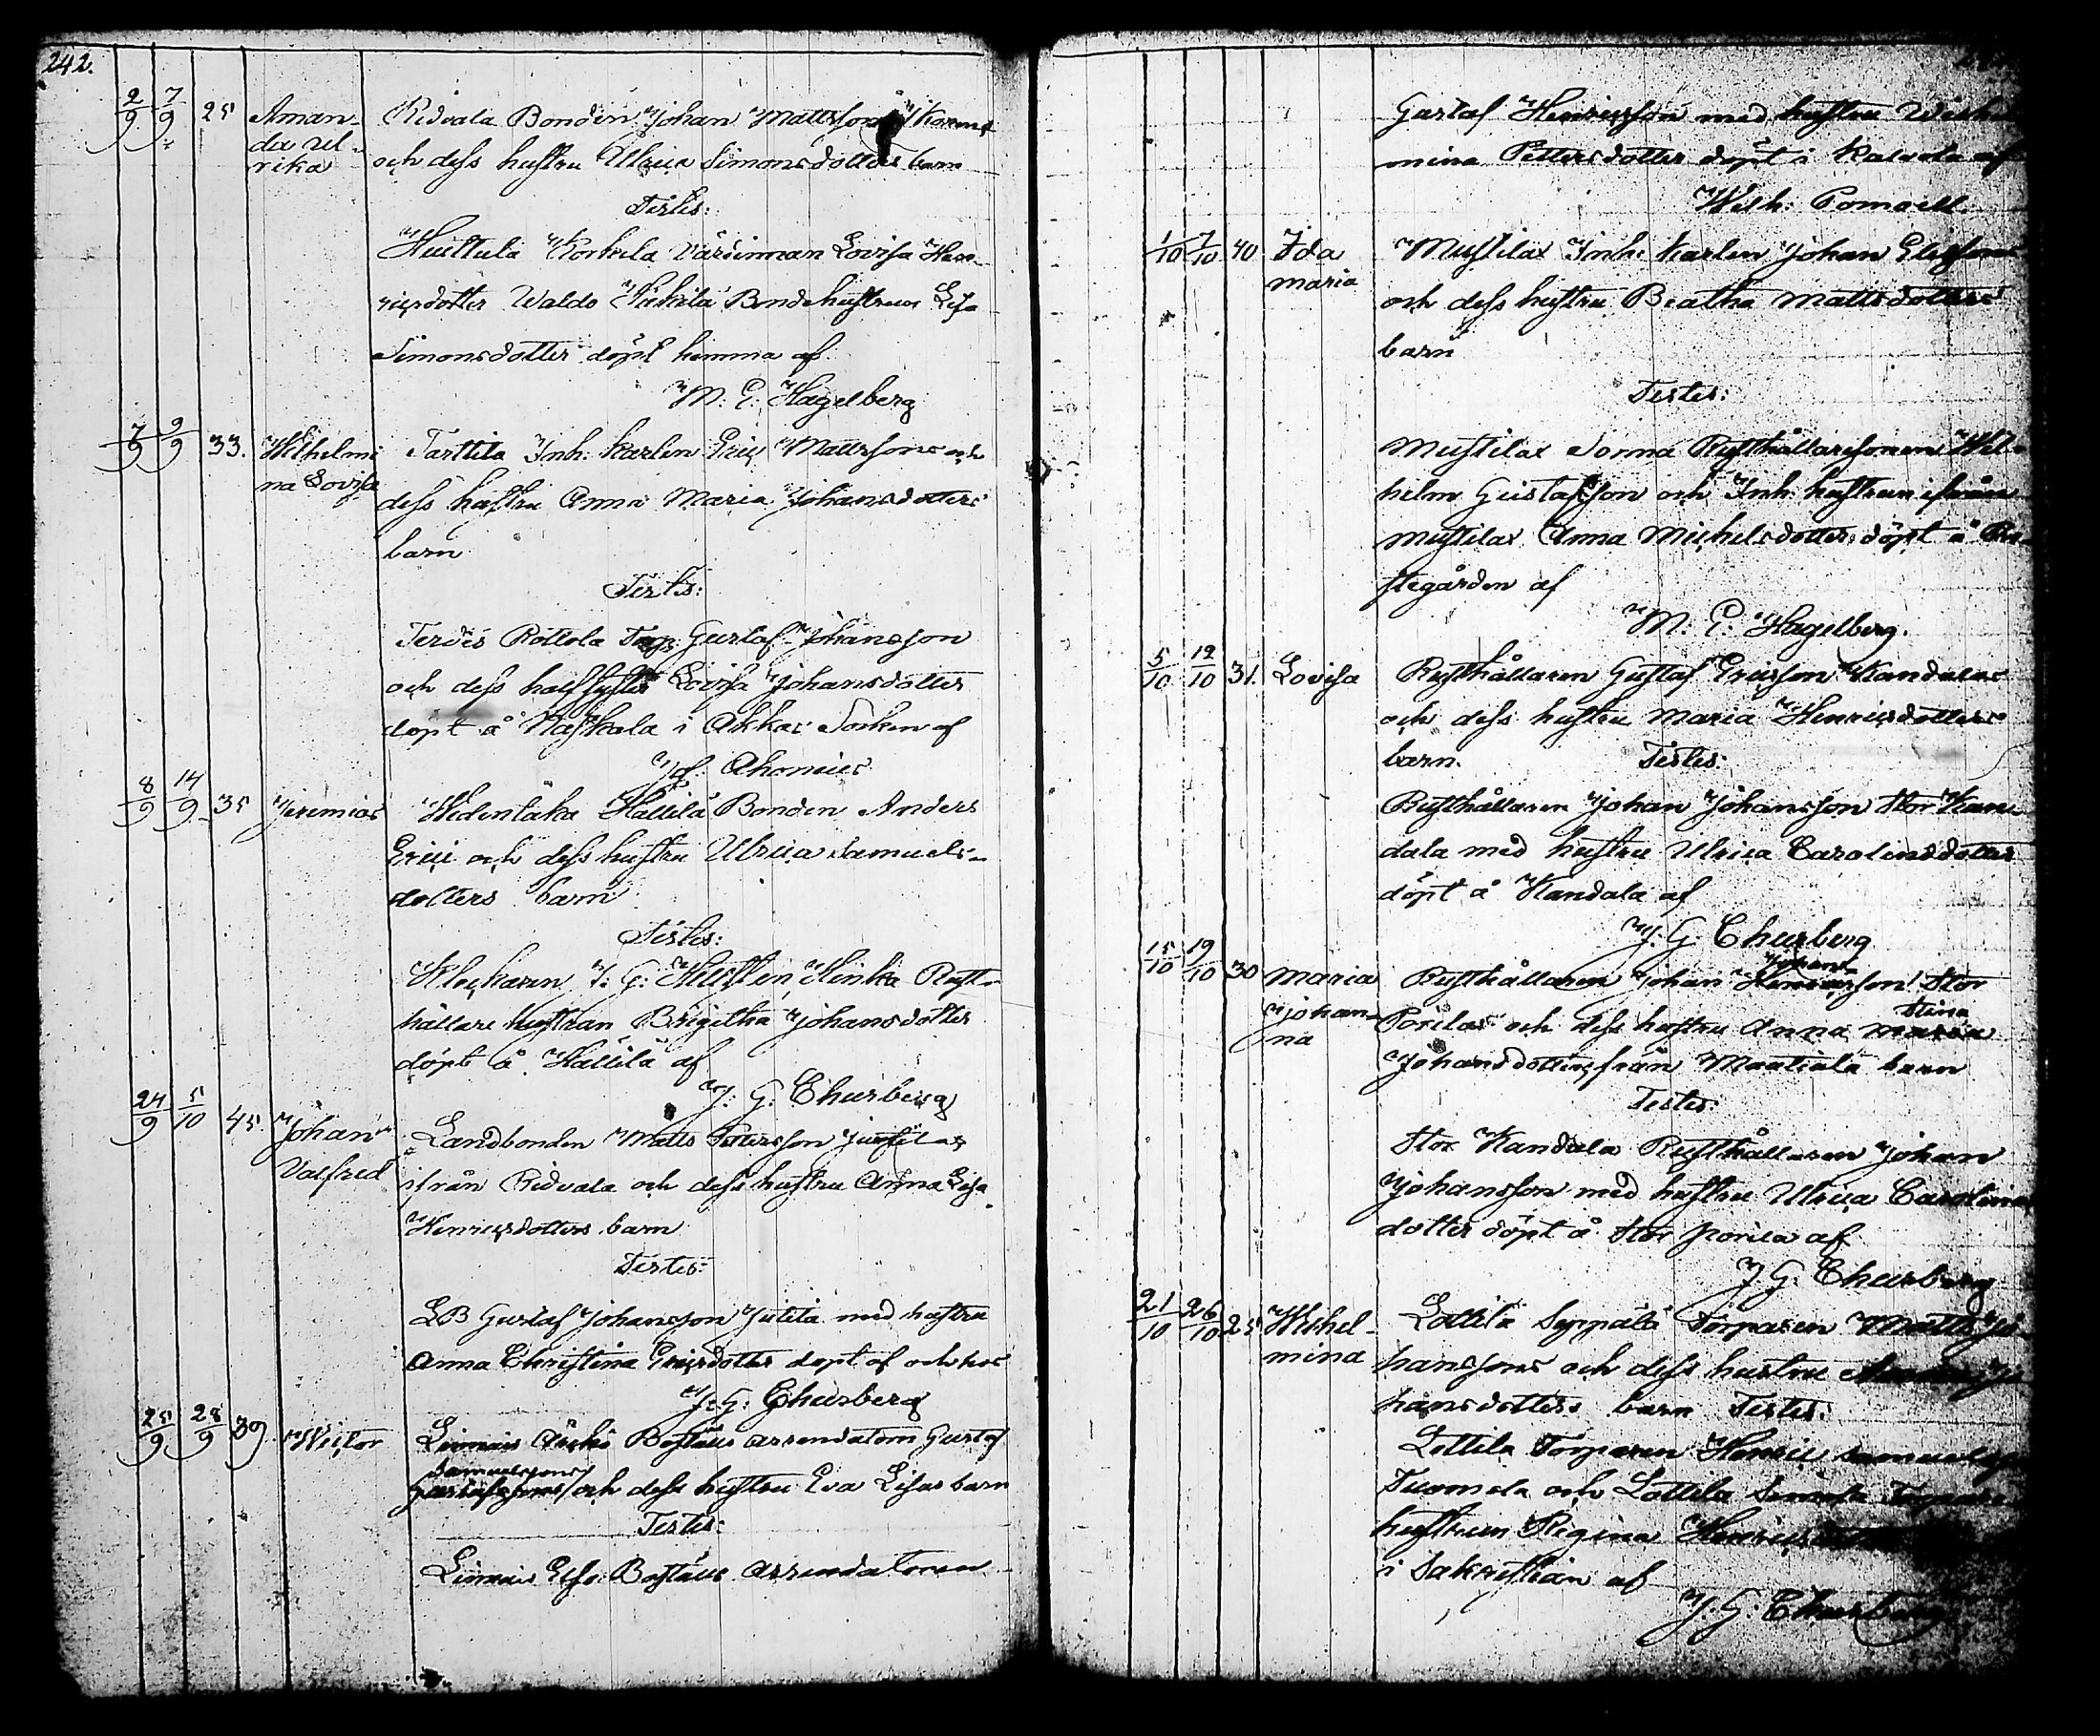 242.
2/9 7/9 25 Aman- Ridvala Bonden Johan Mattsson
da Ul- och dess hustru Ulrica Simonsdotters barn
rika
Testes:
Huittula Korkila Värdinnan Lovisa Hen-
ricsdotter Waldo Bondehustrun Lisa
Simonsdotter döpt hemma af
M: E: Hagelberg
7/9 9/9 33. Wilhelmi Tarttila Inh. karlen Eric Mattssons och
na Lovisa dess hustru Anna Maria Johansdotters
barn
Testes:
Rottola Torp. Gustaf Johansson
och dess halfsyster Lovisa Johansdotter
döpt å Naskala i Akkas Socken af
Jos: Ahonius
8/9 14/9 35 Jeremias Hidenlaka Hallila Bonden Anders
Erici och dess hustru Ulrica Samuels-
dotters barn
Testes:
Klockaren J: G: Hinka Rust-
hållare hustrun Brigitha Johansdotter
döpt å Hallila af
J: G: Churberg
24/9 5/10 45. Johan Landbonden Matts Pettersson
Valfred ifrån Ridvala och dess hustru Anna Lisa
Henricsdotters barn
Testes:
LB Gustaf Johansson Jutila med hustru
Anna Christina Ericsdotter döpt af och hos
J: G: Churberg
25/9 28/9 39. Victor Liuniais Boställs arrendatorn Gustaf
Samuelssons
Gustafssons och dess hustru Eva Lisas barn
Testes:
Liuniais Boställs arrendatoren
Gustaf Henricsson med hustru Wilhel
mina Pettersdotter döpt i Kalvola af
Wilh: Pomoell.
1/10 7/10 40 Ida Mustilax Inh: karlen Johan
maria och dess hustru Beatha Mattsdotters
barn
Testes:
Mustilax Sorma Rusthållaresonen Wil-
helm Gustafsson och Inh. hustrun ifrån
Mustilax Anna Michelsdotter döpt å Pre-
stegården af
M: E: Hagelberg.
5/10 12/10 31. Lovisa Rusthållaren Gustaf Ericsson Kandalas
och dess hustru Maria Henricsdotters
barn. Testes:
Rusthållaren Johan Johansson Stor Kan-
dala med hustru Ulrica Carolinsdotter
döpt å Kandala af
J: G: Churberg
Johans-
15/10 19/10 30 Maria Rusthållaren Johan Henricsson Stor
Stina
Johan- Porilas och dess hustru Anna Maria
na Johansdotters från Maatiala barn
Testes:
Stor Kandala Rusthållaren Johan
Johansson med hustru Ulrica Carolina
dotter döpt å Stor Porila af
J G: Churberg
21/10 26/10 25 Wilhel- Lottila Seppälä Torparen Matts Jo-
mina hanssons och dess hustru
hansdotters barn Testes:
Lottila Torparen Henric Samuelss
Tuomola och Lottila Torpare
hustrun Regina Henrics
i Sakristian af
J. G: Churberg